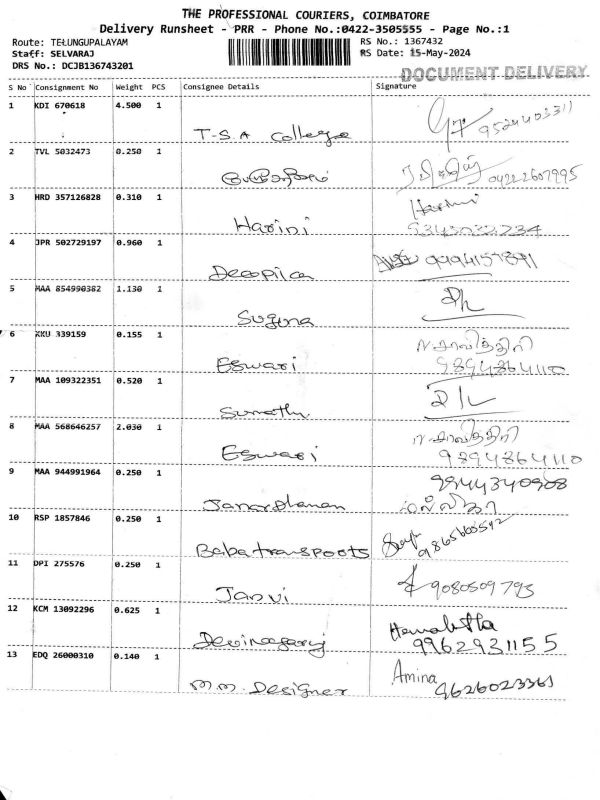 THE PROFESSIONAL COURIERS, COIMBATORE
Delivery Runsheet - PRR - Phone No.:0422-3505555 - Page No.:1
Route: TELUNGUPALAYAM RS No.: 1367432
Staff: SELVARAJ RS Date: 15-May-2024
DRS No.: DCJB136743201
DOCUMENT DELIVERY
S No Consignment No Weight PCS Consignee Details Signature
1 KDI 670618 4.500 1
T-S.A College 9524403311
2 TVL 5032473 0.250 1
04222607995
3 HRD 357126828 0.310 1
Harini
4 JPR 502729197 0.960 1
Deepika
5 MAA 854990382 1.130 1
Suguna
6 KKU 339159 0.155 1
Eswari 9894864110
7 MAA 109322351 0.520 1
Sumathi
8 MAA 568646257 2.030 1
Eswari 9894864110
9 MAA 944991964 0.250 1 9944340908
Janarthanan
10 RSP 1857846 0.250 1
Baba transpoots 9865660542
11 DPI 275576 0.250 1
Janvi 9080509793
12 KCM 13092296 0.625 1 Hemalatha
9962931155
13 EDQ 26000310 0.140 1 Amina
M.M. Designer 9626023361